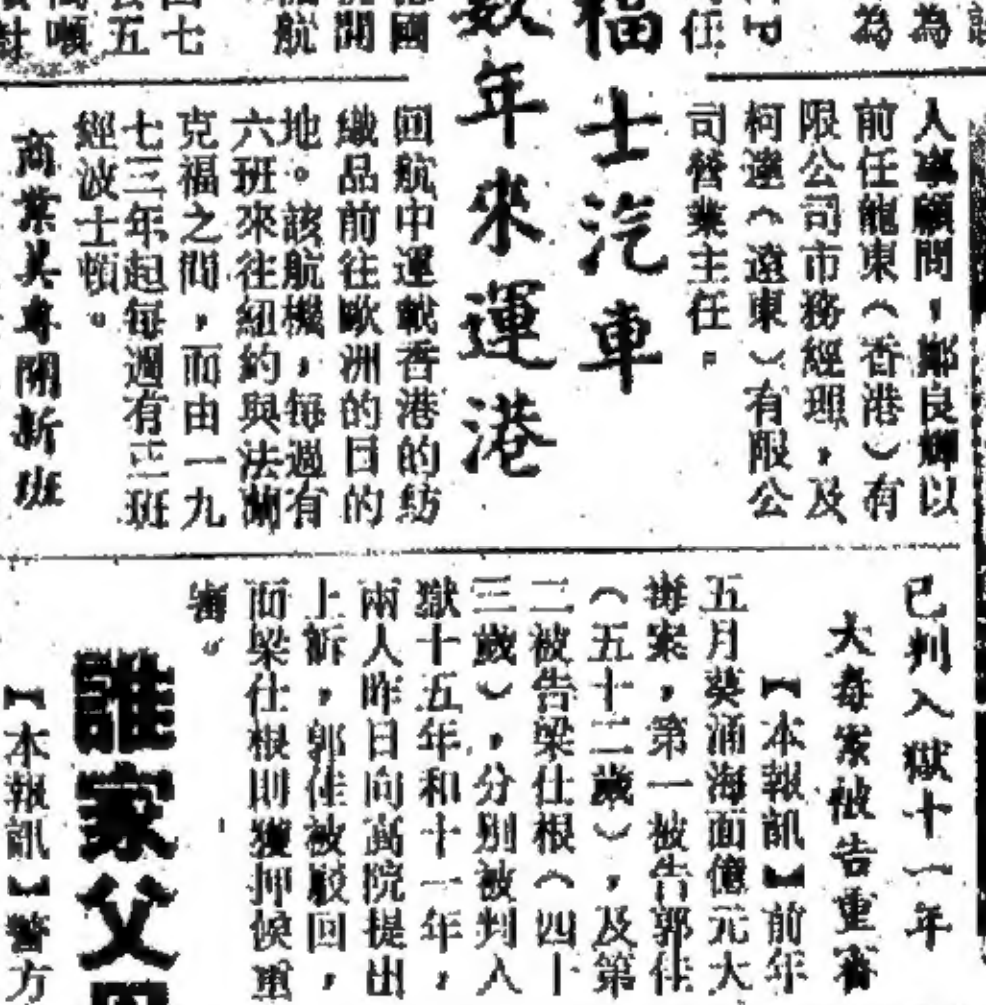 為
為
任
國
開
航
七
五
噸
人事顧問,鄺良輝以
前任龍東(香港)有
限公司市務經理,及
柯達(遠東)有限公
司營業主任。
福士汽車
數年來運港
回航中運載香港的紡
織品前往歐洲的目的
地。該航機,每週有
六班來往紐約與法蘭
克福之間,而由一九
七三年起每週有三班
經波士頓。
商業其專開新班
已判入獄十一年
大毒案被告重審
【本報訊】前年
五月葵涌海面億元大
毒案,第一被告郭佳
(五十二歲),及第
二被告梁仕根(四十
三歲),分別被判入
獄十五年和十一年,
兩人昨日向高院提出
上訴,郭佳被駁回,
而梁仕根則獲押候重
審。
誰家父
【本報訊】警方